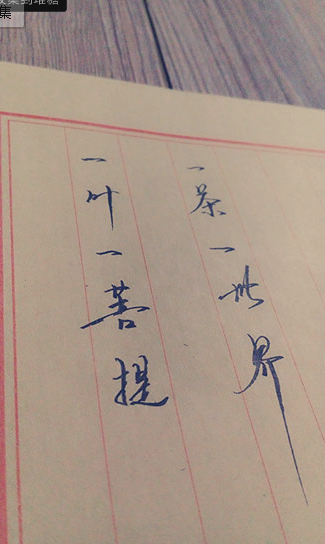 一茶一世界
一叶一菩提